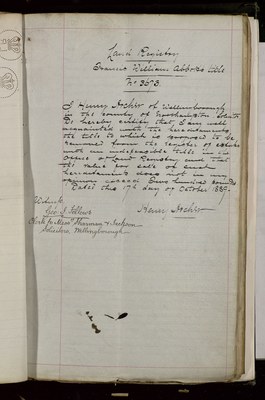 Land Registry
Francis William Abbotts title
No 3673.
I Henry Archer of Wellingborough
in the county of Northampton
do hereby certify that I am well
acquainted with the hereditaments
the title to which is proposed to be
removed from the register of estates
with an indefeasible title in the
Office of Land Registry and that
the value for sale of such
hereditaments does not in my
opinion exceed Two hundred pounds
Dated this 17th day of October 1889.
Henry Archer
Witness
Geo. J.
Clerk to Messrs Sharman & Jackson
Solicitors Wellingborough